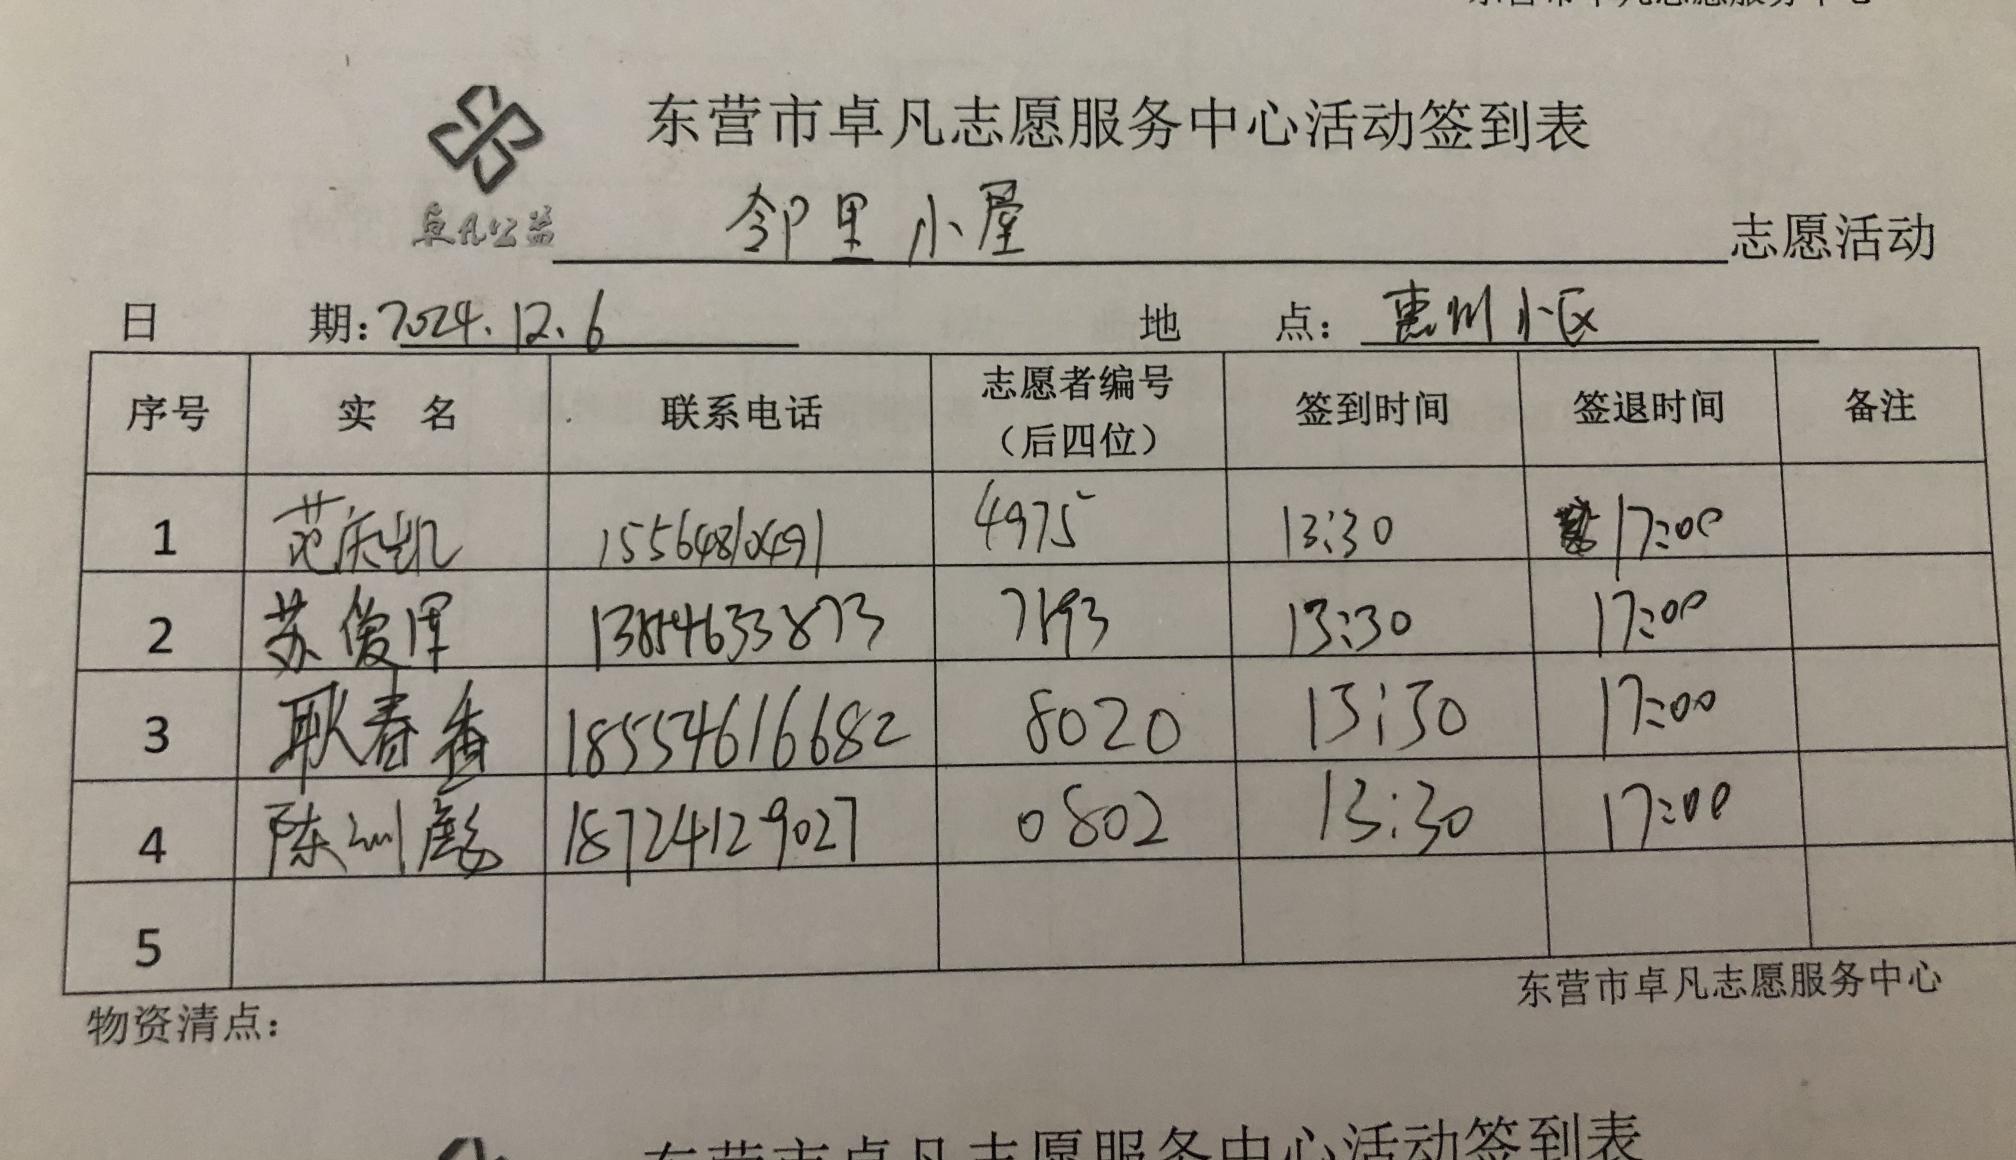 东营市卓凡志愿服务中心
东营市卓凡志愿服务中心活动签到表
卓凡公益
邻里小屋 志愿活动
日 期：2024.12.6 地 点：惠州小区
序号 实 名 联系电话 志愿者编号（后四位） 签到时间 签退时间 备注
1 范庆凯 15564810491 4975 13:30 17:00
2 苏俊浑 13854633873 7193 13:30 17:00
3 耿春香 18554616682 8020 13:30 17:00
4 陈 彪 18724129027 0802 13:30 17:00
5
东营市卓凡志愿服务中心
物资清点：
东营市卓凡志愿服务中心活动签到表